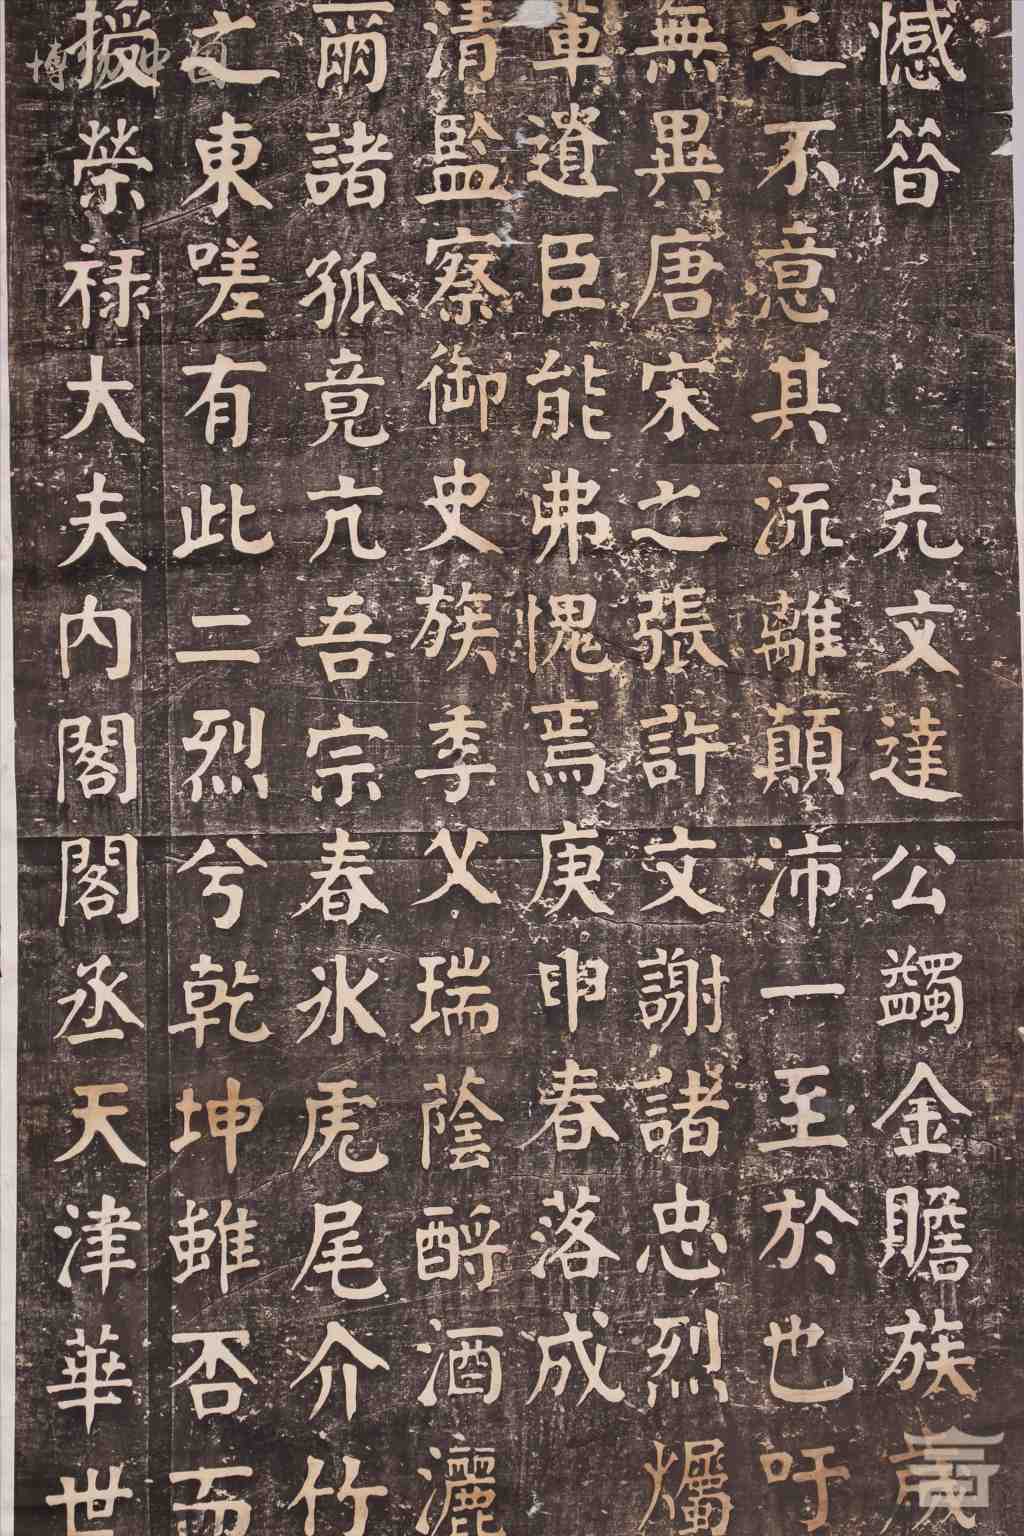 憾筲 先文達公蠲金贍族歲
之不意其流離顛沛一至於也吁
無異唐宋之張許文謝諸忠烈爥
輩遺臣能弗愧焉庚申春落成
清監察御史族季父瑞蔭酹酒灑
爾諸孤竟亢吾宗春氷虎尾介竹
之東嗟有此二烈兮乾坤雖否而
授榮祿大夫內閣閣丞天津華世